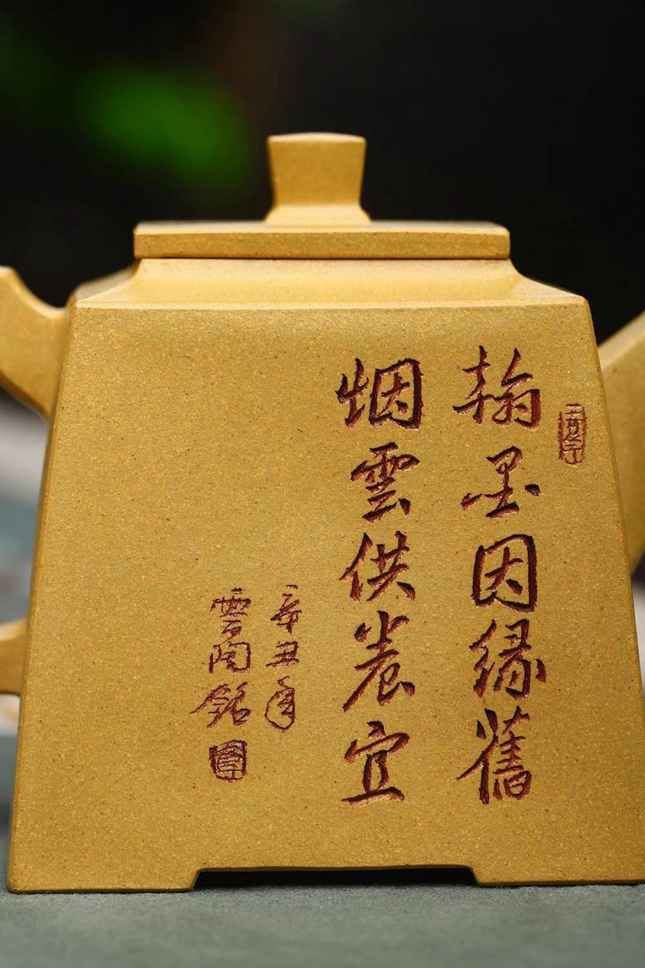 翰墨因緣舊
烟雲供養宜
辛丑年
雲陶銘